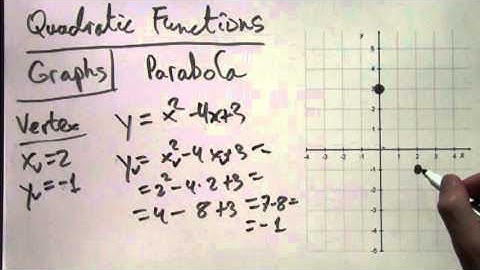 Quadratic Functions
Graphs Parabola
Vertex
xᵥ=2
yᵥ=-1
y = x² -4x+3
yᵥ= xᵥ²-4xᵥ+3=
=2²-4·2+3=
=4-8+3 =7-8=
=-1
y
5
4
3
2
1
-4 -3 -2 -1 1 2 3 4 x
-1
-2
-3
-4
-5